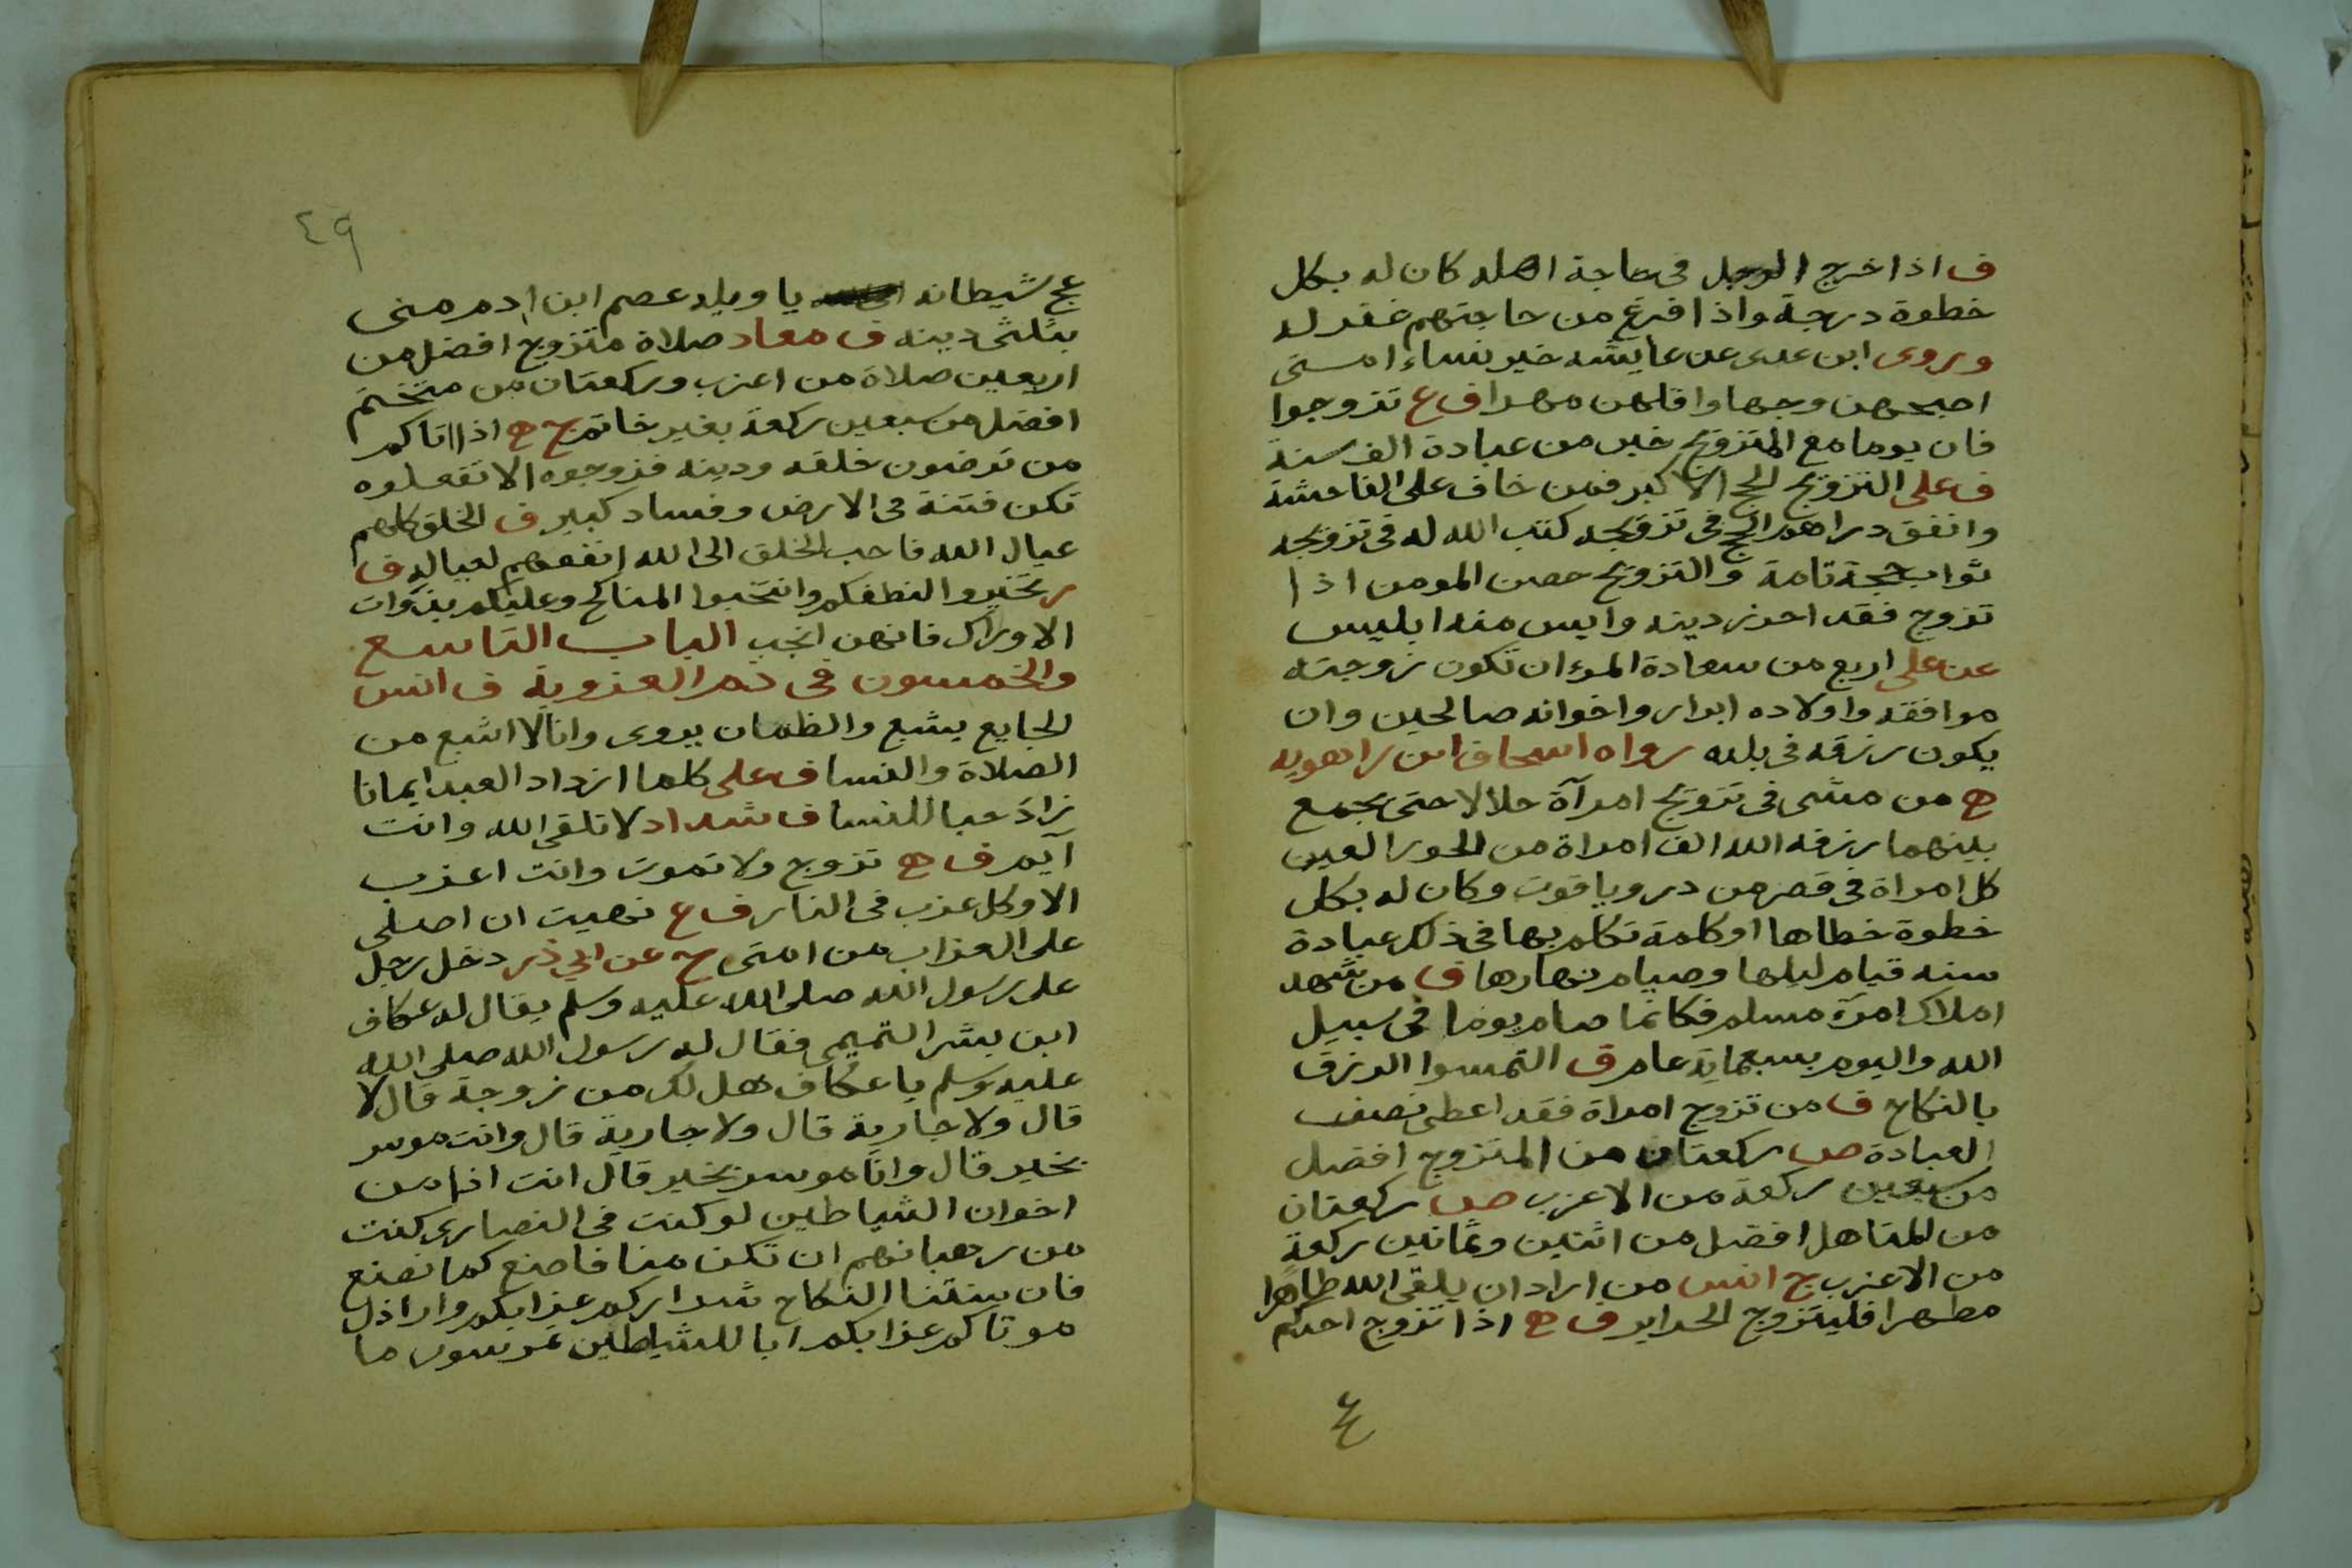 ف اذا خرج الرجل فى حاجة اهله كان له بكل
خطوة درجة واذا فرغ من حاجتهم غفر له
وروى ابن عدى عن عايشه خير نساء امتى
اصبحهن وجها واقلهن مهرا ف ع تزوجوا
فان يوما مع المتزوج خير من عبادة الف سنة
ف على التزويج الحج الاكبر فمن خاف على الفاحشة
وانفق دراهم الحج فى تزويجه كتب الله له فى تزويجه
ثواب حجة تامة والتزويج حصن المومن اذا
تزوج فقد احرز دينه وايس منه ابليس
عن على اربع من سعادة المرء ان تكون زوجته
موافقه واولاده ابرار واخوانه صالحين وان
يكون رزقه فى بلده رواه اسحاق ابن راهويه
ح من مشى فى تزويج امرآة حلالا حتى يجمع
بينهما رزقه الله الف امراة من الحور العين
كل امراة فى قصر من در وياقوت وكان له بكل
خطوة خطاها او كلمة تكلم بها فى ذلك عبادة
سنه قيام ليلها وصيام نهارها ف من شهد
املاك امرء مسلم فكانما صام يوما فى سبيل
الله واليوم بسبعماية عام ق التمسوا الرزق
بالنكاح ف من تزوج امراة فقد اعطى نصف
العبادة ص ركعتان من المتزوج افضل
من سبعين ركعة من الاعزب ص ركعتان
من المتاهل افضل من اثنين وثمانين ركعة
من الاعزب ج انس من اراد ان يلقى الله طاهرا
مطهرا فليتزوج الحراير ف ح اذا تزوج احدكم
ع
٤٩
عج شيطانه يا ويله عصم ابن ادم منى
بثلثى دينه ف معاد صلاة متزوج افضل من
اربعين صلاة من اعزب وركعتان من متختم
افضل من سبعين ركعة بغير خاتم ج ح اذا اتاكم
من ترضون خلقه ودينه فزوجوه الا تفعلوه
تكن فتنة فى الارض وفساد كبير ف الخلق كلهم
عيال الله فاحب الخلق الى الله انفعهم لعياله ف
ر تخيروا لنطفكم وانتخبوا المناكح وعليكم بذوات
الاوراك فانهن انجب الباب التاسع
والخمسون فى ذم العزوبة ف انس
الجايع يشبع والظمان يروى وانا لا اشبع من
الصلاة والنسا ف على كلما ازداد العبد ايمانا
زاد حبا للنسا ف شداد لا تلقى الله وانت
آيم ف ح تزوج ولا تموت وانت اعزب
الا وكل عزب فى النار ف ع نهيت ان اصلى
على العزاب من امتى ح عن ابي ذر دخل رجل
على رسول الله صلى الله عليه وسلم يقال له عكاف
ابن بشر التميمى فقال له رسول الله صلى الله
عليه وسلم يا عكاف هل لك من زوجة قال لا
قال ولا جارية قال ولا جارية قال وانت موسر
بخير قال وانا موسر بخير قال انت اذا من
اخوان الشياطين لو كنت فى النصارى كنت
من رهبانهم ان تكن منا فاصنع كما نصنع
فان سنتنا النكاح شراركم عزابكم واراذل
موتاكم عزابكم ابا للشياطين تمرسون ما